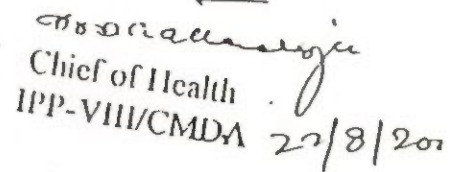 Chief of Health
IPP-VIII/CMDA
22/8/200